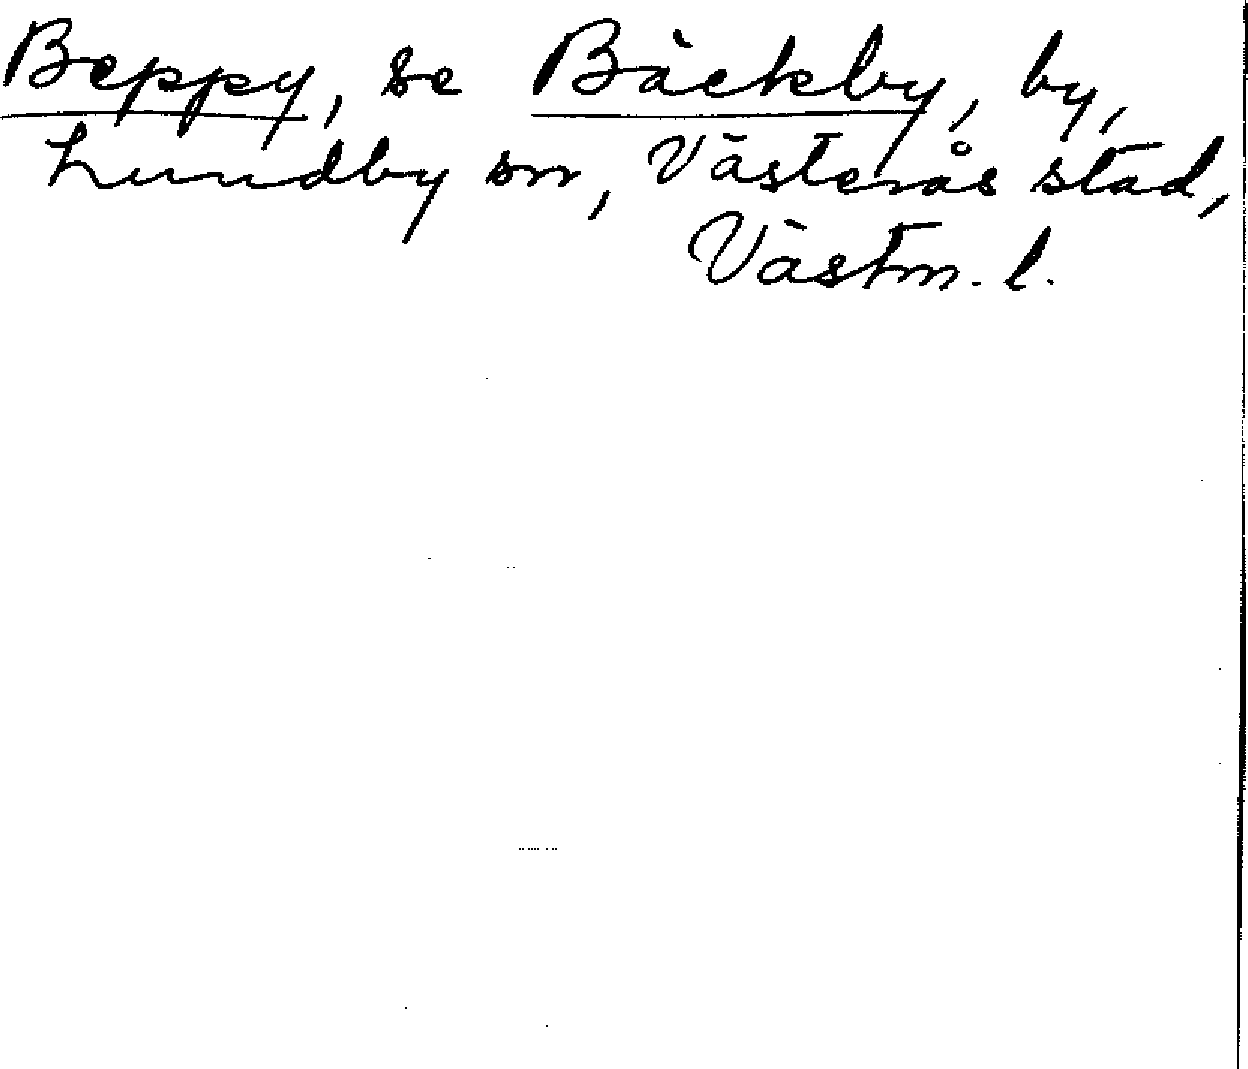 Beppy, se Bäckby, by,
Lundby sn, Västerås stad,
Västm. l.